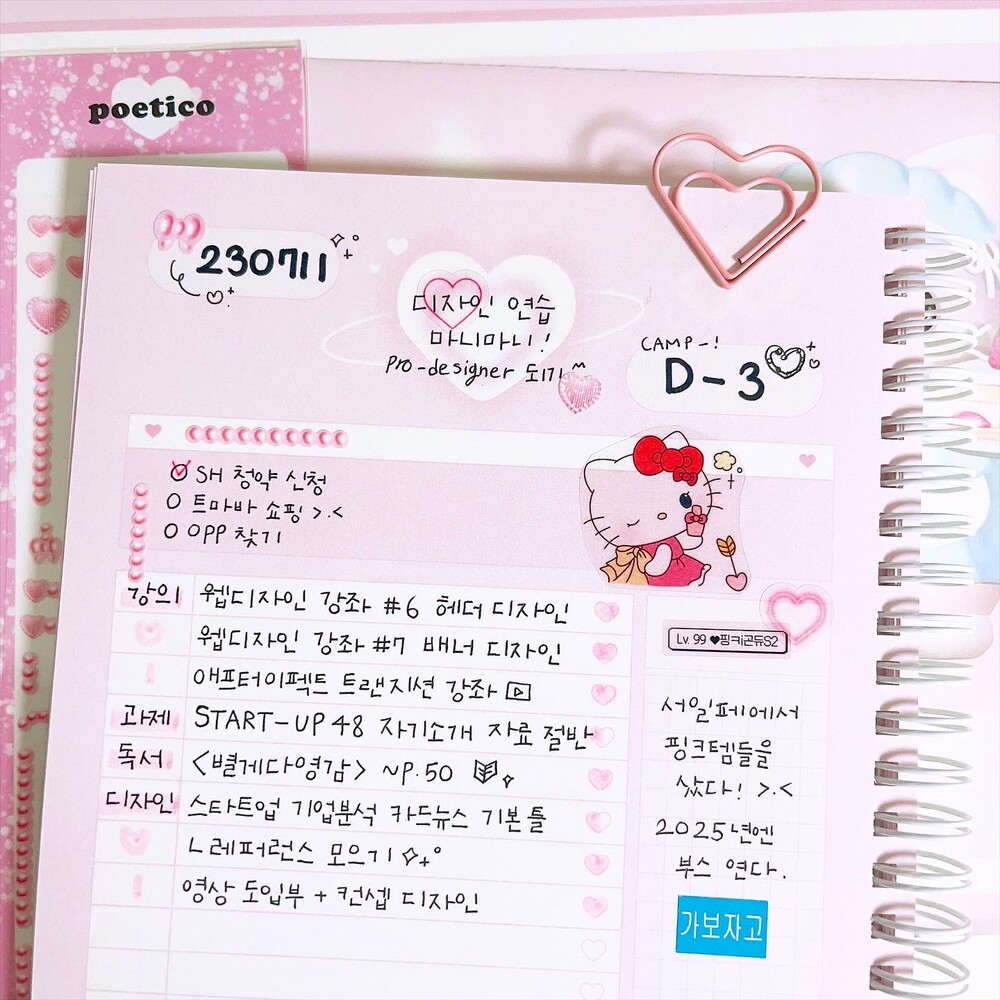 poetico
230711
디자인 연습
마니마니!
pro-designer 되기~
CAMP-!
D-3
SH 청약 신청
트마바 쇼핑 >.<
OPP 찾기
강의 웹디자인 강좌 #6 헤더 디자인
웹디자인 강좌 #7 배너 디자인
애프터이펙트 트랜지션 강좌
과제 START-UP 48 자기소개 자료 절반
독서 <별게다영감> ~P.50
디자인 스타트업 기업분석 카드뉴스 기본 틀
ㄴ레퍼런스 모으기
영상 도입부 + 컨셉 디자인
Lv. 99 ♥핑크i곤듀S2
서일페에서
핑크템들을
샀다! >.<
2025년엔
부스 연다.
가보자고